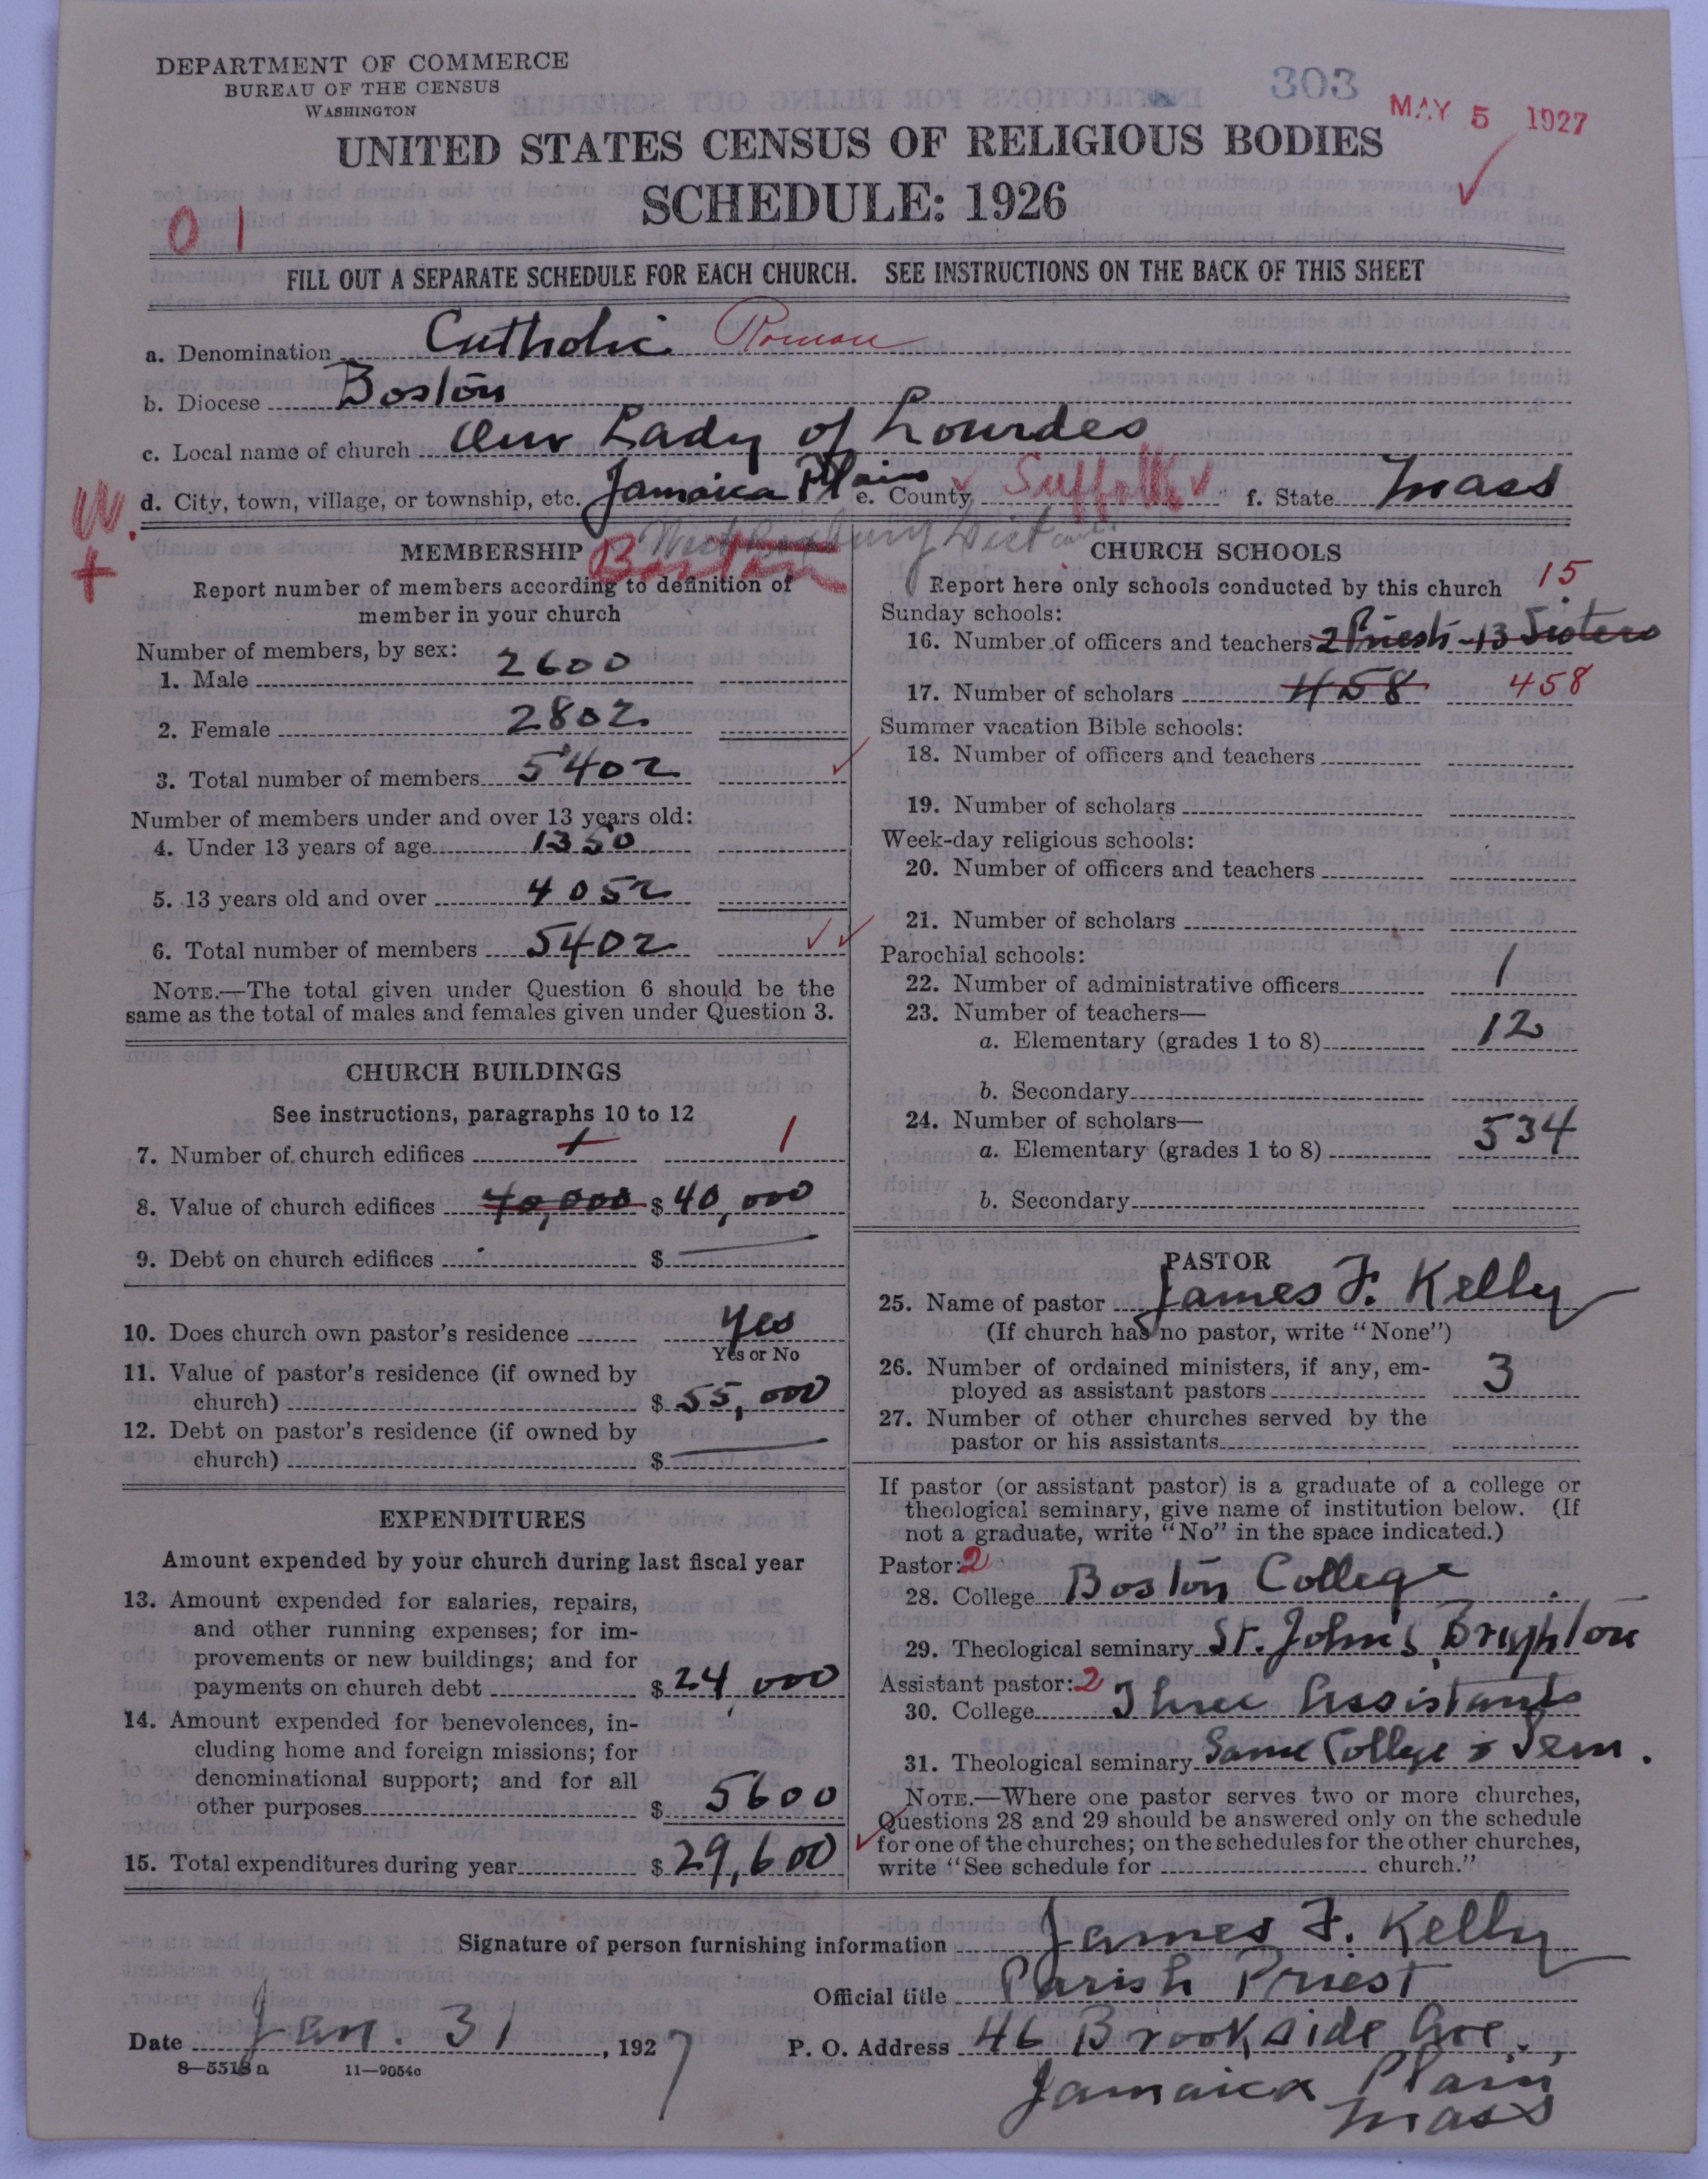 DEPARTMENT OF COMMERCE
BUREAU OF THE CENSUS
WASHINGTON
303
MAY 5 1927
UNITED STATES CENSUS OF RELIGIOUS BODIES
SCHEDULE: 1926
01
FILL OUT A SEPARATE SCHEDULE FOR EACH CHURCH. SEE INSTRUCTIONS ON THE BACK OF THIS SHEET
a. Denomination Catholic Roman
b. Diocese Boston
c. Local name of church Our Lady of Lourdes
W.
d. City, town, village, or township, etc. Jamaica Plain e. County Suffolk f. State Mass
+
MEMBERSHIP
Boston
Report number of members according to definition of
member in your church
Number of members, by sex:
1. Male 2600
2. Female 2802
3. Total number of members 5402
Number of members under and over 13 years old:
4. Under 13 years of age 1350
5. 13 years old and over 4052
6. Total number of members 5402
NOTE.—The total given under Question 6 should be the
same as the total of males and females given under Question 3.
CHURCH BUILDINGS
See instructions, paragraphs 10 to 12
7. Number of church edifices 1 1
8. Value of church edifices 40,000 $ 40,000
9. Debt on church edifices $ —
10. Does church own pastor's residence Yes
Yes or No
11. Value of pastor's residence (if owned by
church) $ 55,000
12. Debt on pastor's residence (if owned by
church) $ —
EXPENDITURES
Amount expended by your church during last fiscal year
13. Amount expended for salaries, repairs,
and other running expenses; for im-
provements or new buildings; and for
payments on church debt $ 24,000
14. Amount expended for benevolences, in-
cluding home and foreign missions; for
denominational support; and for all
other purposes $ 5600
15. Total expenditures during year $ 29,600
CHURCH SCHOOLS
Report here only schools conducted by this church
15
Sunday schools:
16. Number of officers and teachers 2 Priests - 13 Sisters
17. Number of scholars 458 458
Summer vacation Bible schools:
18. Number of officers and teachers
19. Number of scholars
Week-day religious schools:
20. Number of officers and teachers
21. Number of scholars
Parochial schools:
22. Number of administrative officers 1
23. Number of teachers—
a. Elementary (grades 1 to 8) 12
b. Secondary
24. Number of scholars—
a. Elementary (grades 1 to 8) 534
b. Secondary
PASTOR
25. Name of pastor James F. Kelly
(If church has no pastor, write "None")
26. Number of ordained ministers, if any, em-
ployed as assistant pastors 3
27. Number of other churches served by the
pastor or his assistants
If pastor (or assistant pastor) is a graduate of a college or
theological seminary, give name of institution below. (If
not a graduate, write "No" in the space indicated.)
Pastor: 2
28. College Boston College
29. Theological seminary St. John's, Brighton
Assistant pastor: 2
30. College Three Assistants
31. Theological seminary Same College & Sem.
NOTE.—Where one pastor serves two or more churches,
Questions 28 and 29 should be answered only on the schedule
for one of the churches; on the schedules for the other churches,
write "See schedule for church."
Signature of person furnishing information James F. Kelly
Official title Parish Priest
Date Jan. 31, 1927
P. O. Address 46 Brookside Ave.,
Jamaica Plain
Mass
8—5518a 11—9054c